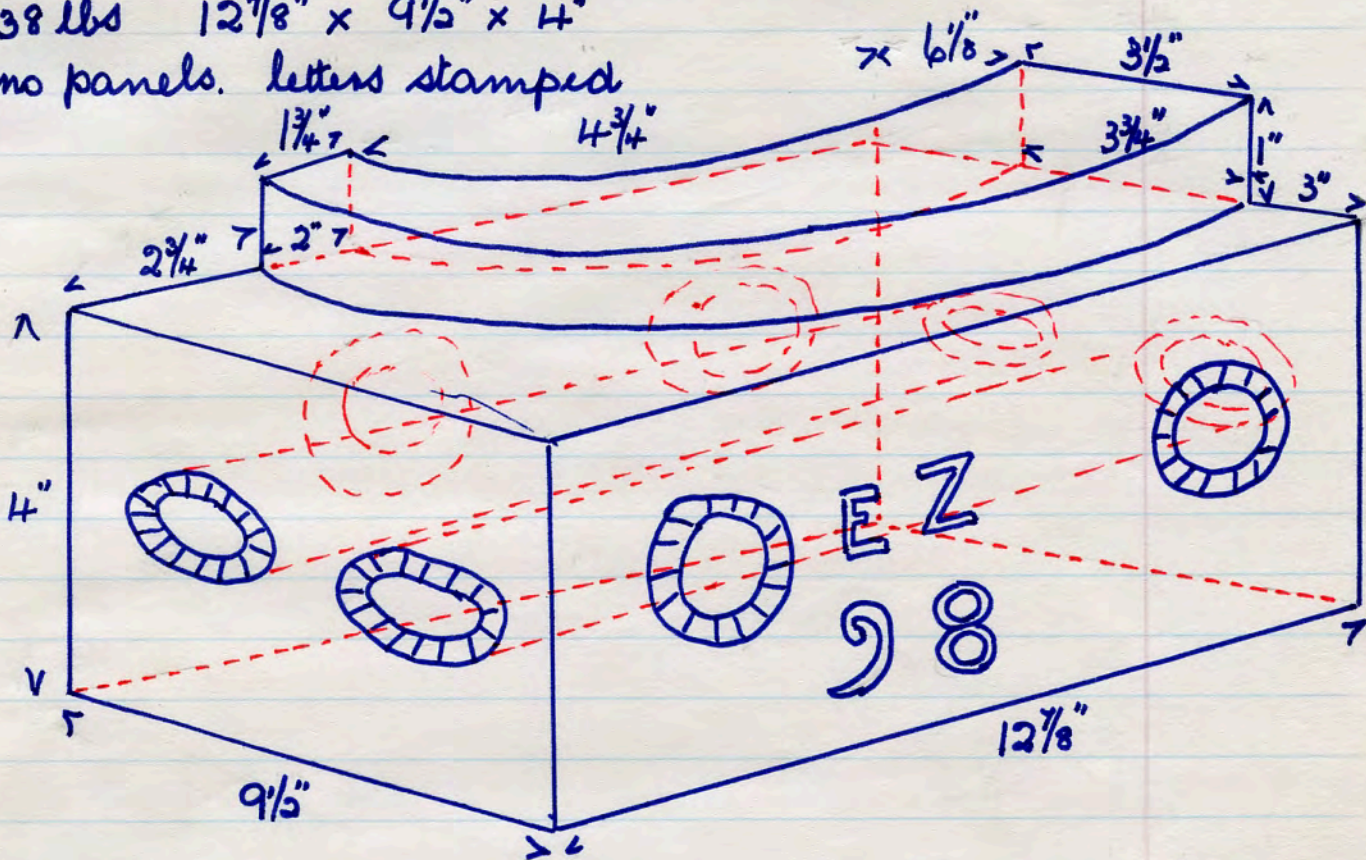 38 lbs 12⅞" x 9½" x 4"
no panels. letters stamped
6⅛"
3½"
1¾"
4¾"
3¾"
1"
3"
2¾"
2"
4"
E Z
98
12⅞"
9½"